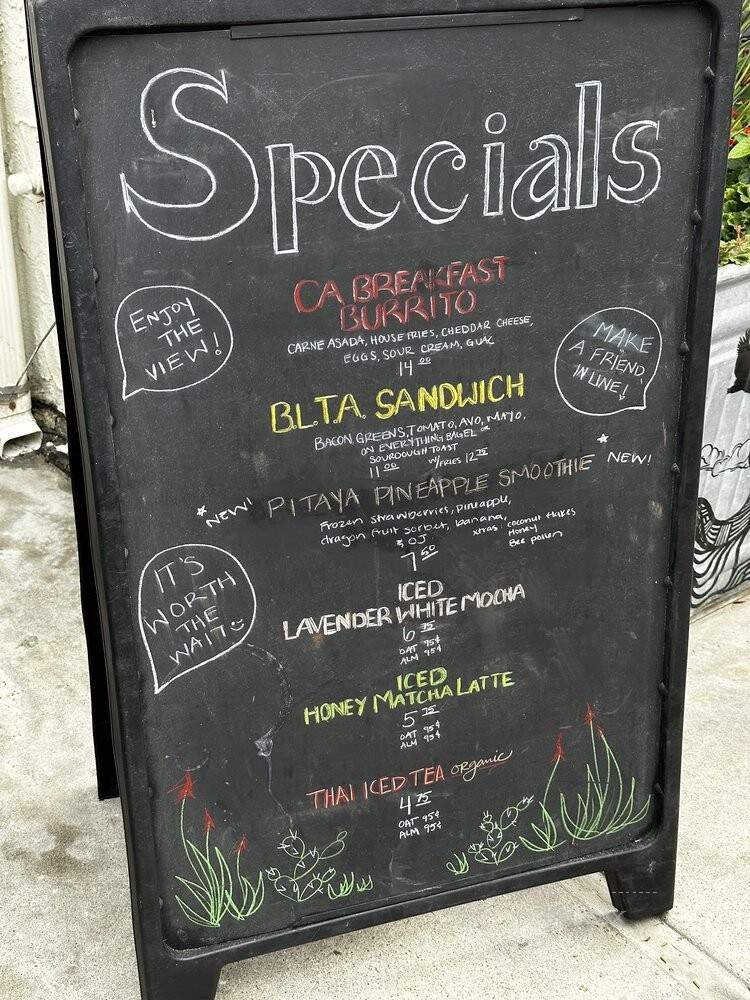 Specials
CA BREAKFAST
BURRITO
CARNE ASADA, HOUSE FRIES, CHEDDAR CHEESE,
EGGS, SOUR CREAM, GUAC
14 00
ENJOY
THE
VIEW!
MAKE
A FRIEND
IN LINE!
B.L.T.A. SANDWICH
BACON GREENS, TOMATO, AVO, MAYO,
ON EVERYTHING BAGEL or
SOURDOUGH TOAST
11 00 W/FRIES 12 75
NEW! PITAYA PINEAPPLE SMOOTHIE NEW!
Frozen strawberries, pineapple,
dragon fruit sorbet, banana,
& OJ
xtras: coconut flakes
Honey
Bee pollen
7 50
IT'S
WORTH
THE
WAIT
ICED
LAVENDER WHITE MOCHA
6 75
OAT 95¢
ALM 95¢
ICED
HONEY MATCHA LATTE
5 75
OAT 95¢
ALM 95¢
THAI ICED TEA organic
4 75
OAT 95¢
ALM 95¢